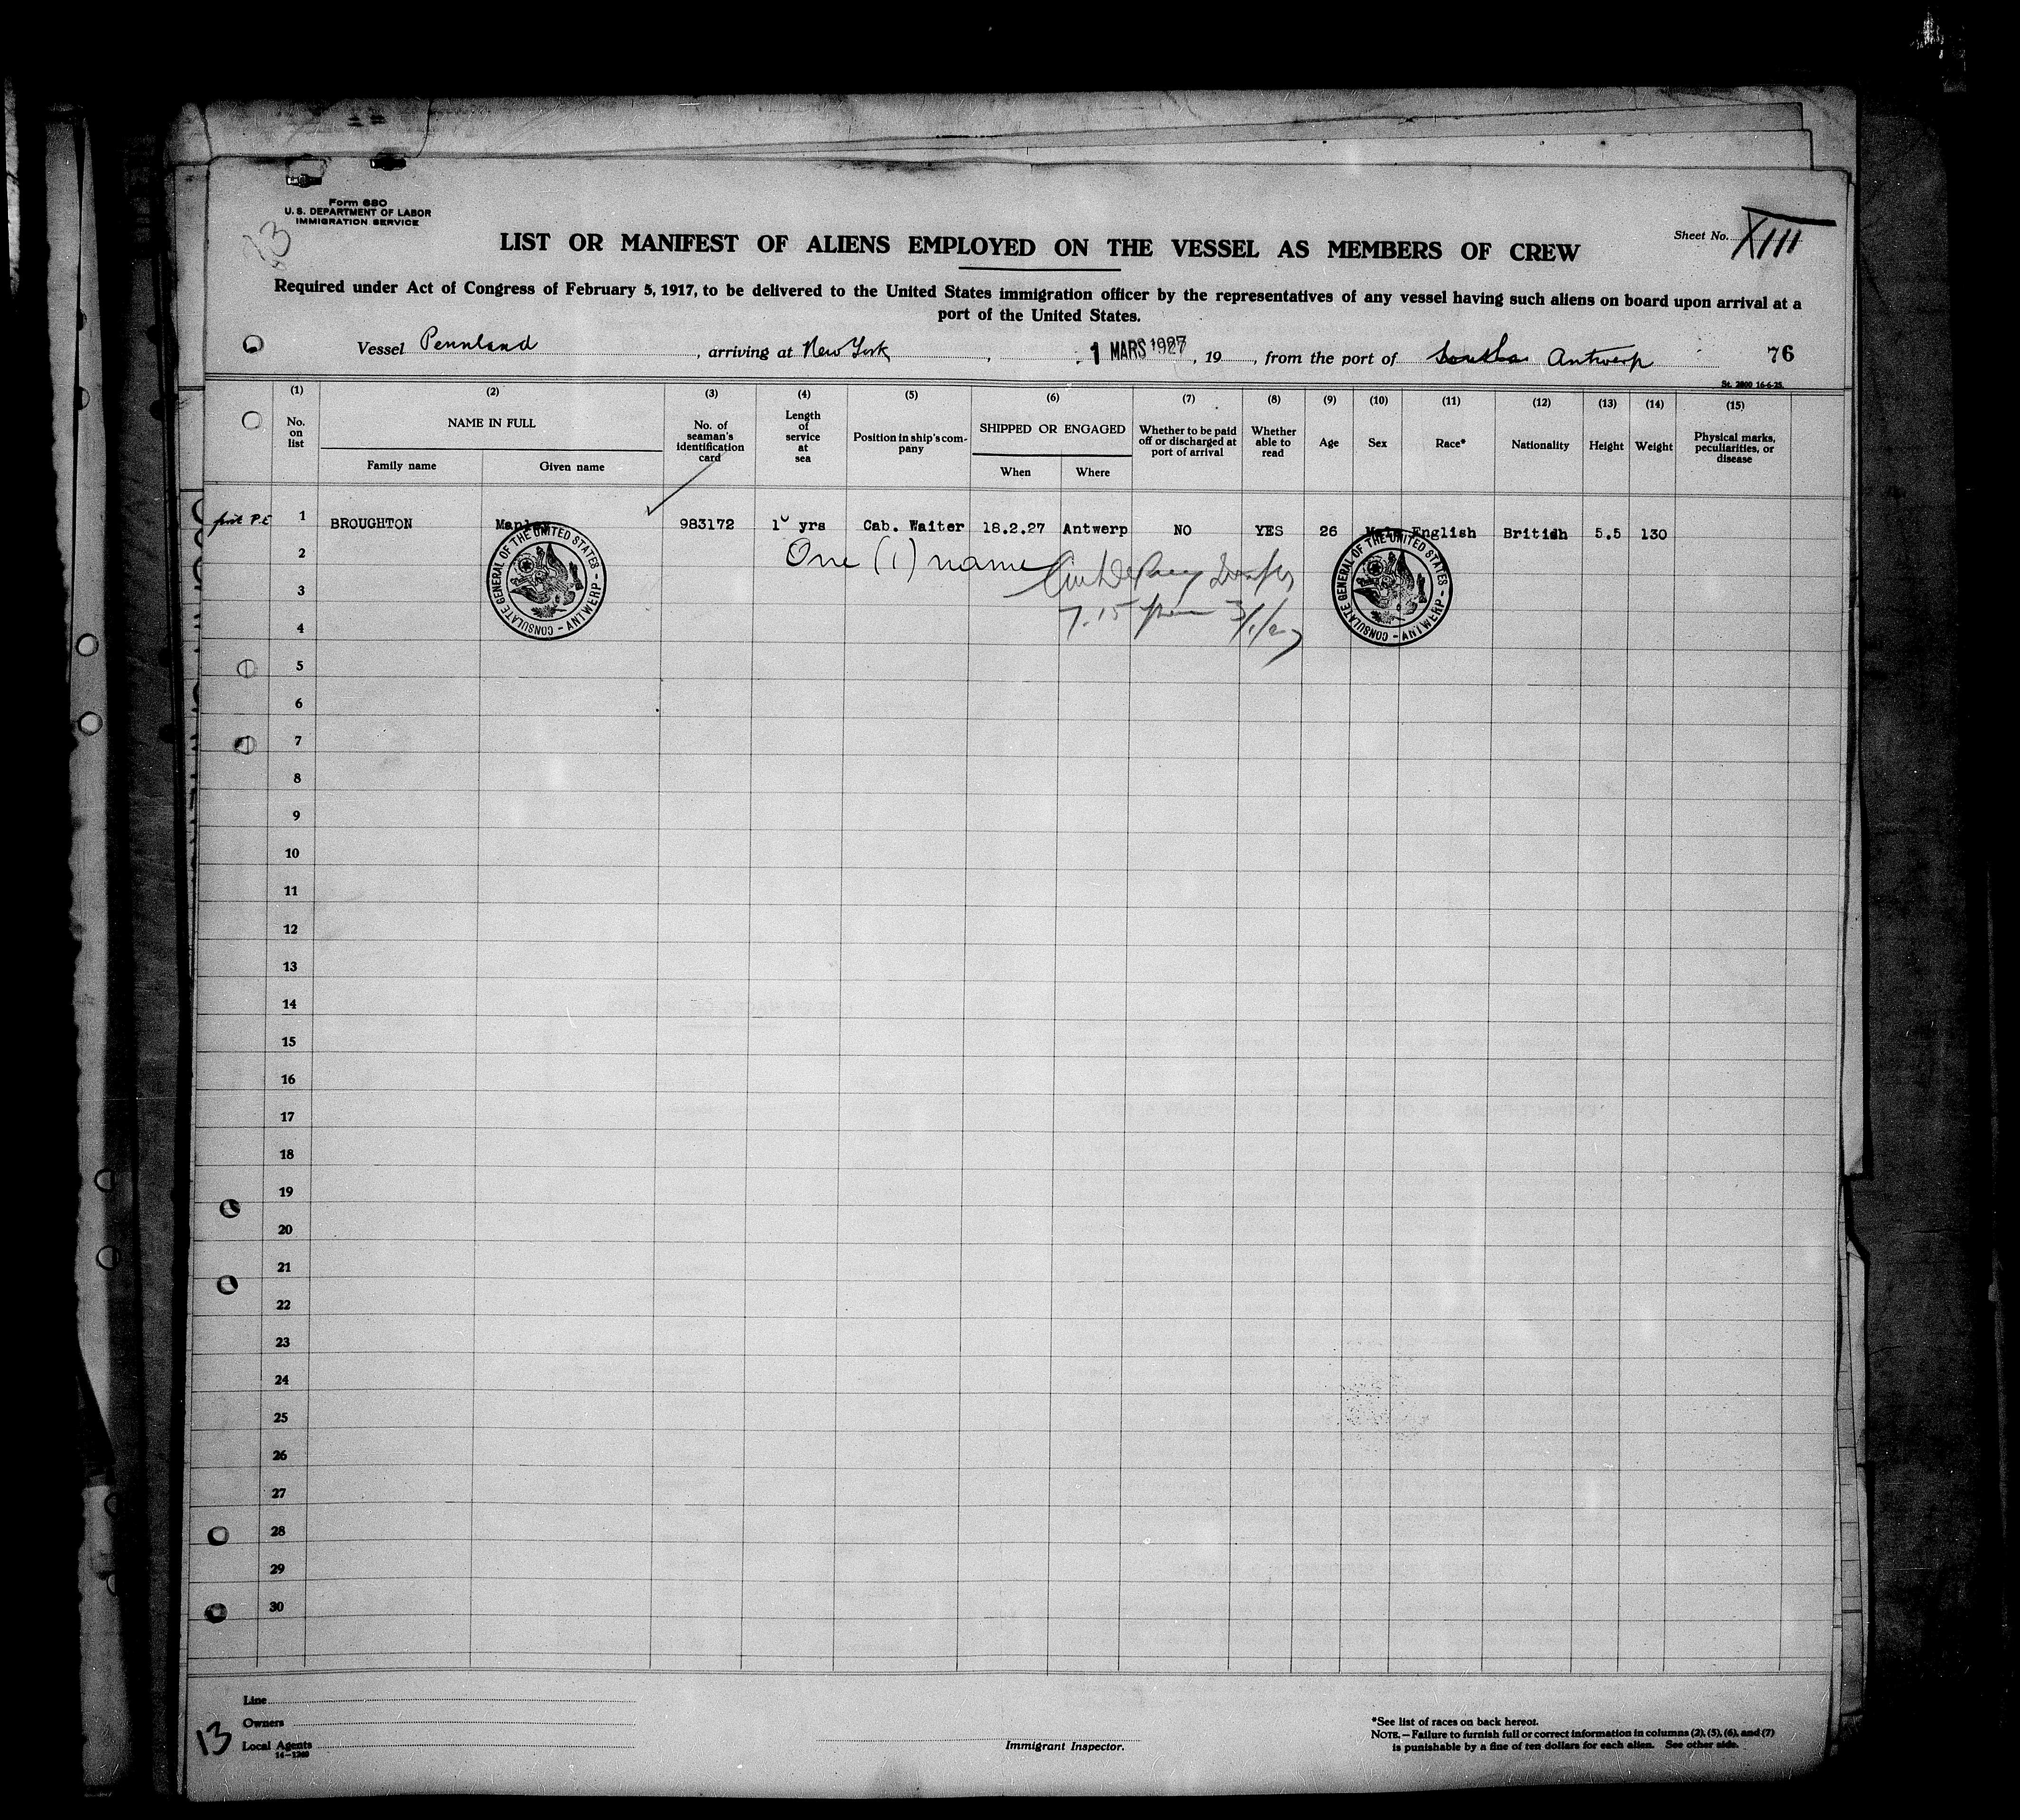 Form 680
U. S. DEPARTMENT OF LABOR
IMMIGRATION SERVICE
23
LIST OR MANIFEST OF ALIENS EMPLOYED ON THE VESSEL AS MEMBERS OF CREW
Sheet No. XIII
Required under Act of Congress of February 5, 1917, to be delivered to the United States immigration officer by the representatives of any vessel having such aliens on board upon arrival at a
port of the United States.
Vessel Pennland, arriving at New York, 1 MARS 1927, 19, from the port of Antwerp 76
St. 2800 16-6-25.
(1) (2) (3) (4) (5) (6) (7) (8) (9) (10) (11) (12) (13) (14) (15)
No. on list
NAME IN FULL
Family name
Given name
No. of seaman's identification card
Length of service at sea
Position in ship's com-pany
SHIPPED OR ENGAGED
When
Where
Whether to be paid off or discharged at port of arrival
Whether able to read
Age
Sex
Race*
Nationality
Height
Weight
Physical marks, peculiarities, or disease
1 BROUGHTON 983172 1 yrs Cab. Waiter 18.2.27 Antwerp NO YES 26 Male English British 5.5 130
One (1) name
7.15 pm 3/1/27
CONSULATE GENERAL OF THE UNITED STATES - ANTWERP -
CONSULATE GENERAL OF THE UNITED STATES - ANTWERP -
2
3
4
5
6
7
8
9
10
11
12
13
14
15
16
17
18
19
20
21
22
23
24
25
26
27
28
29
30
Line
Owners
Local Agents
14-1240
13
Immigrant Inspector.
*See list of races on back hereof.
NOTE.—Failure to furnish full or correct information in columns (2), (5), (6), and (7)
is punishable by a fine of ten dollars for each alien. See other side.